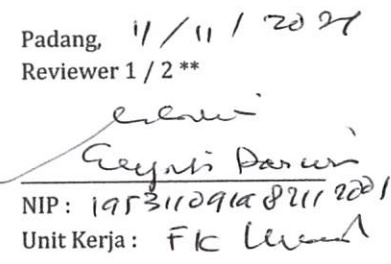 Padang, 11/11/2021
Reviewer 1 / 2 **
Darwin
NIP : 195311091982112001
Unit Kerja : FK Unand